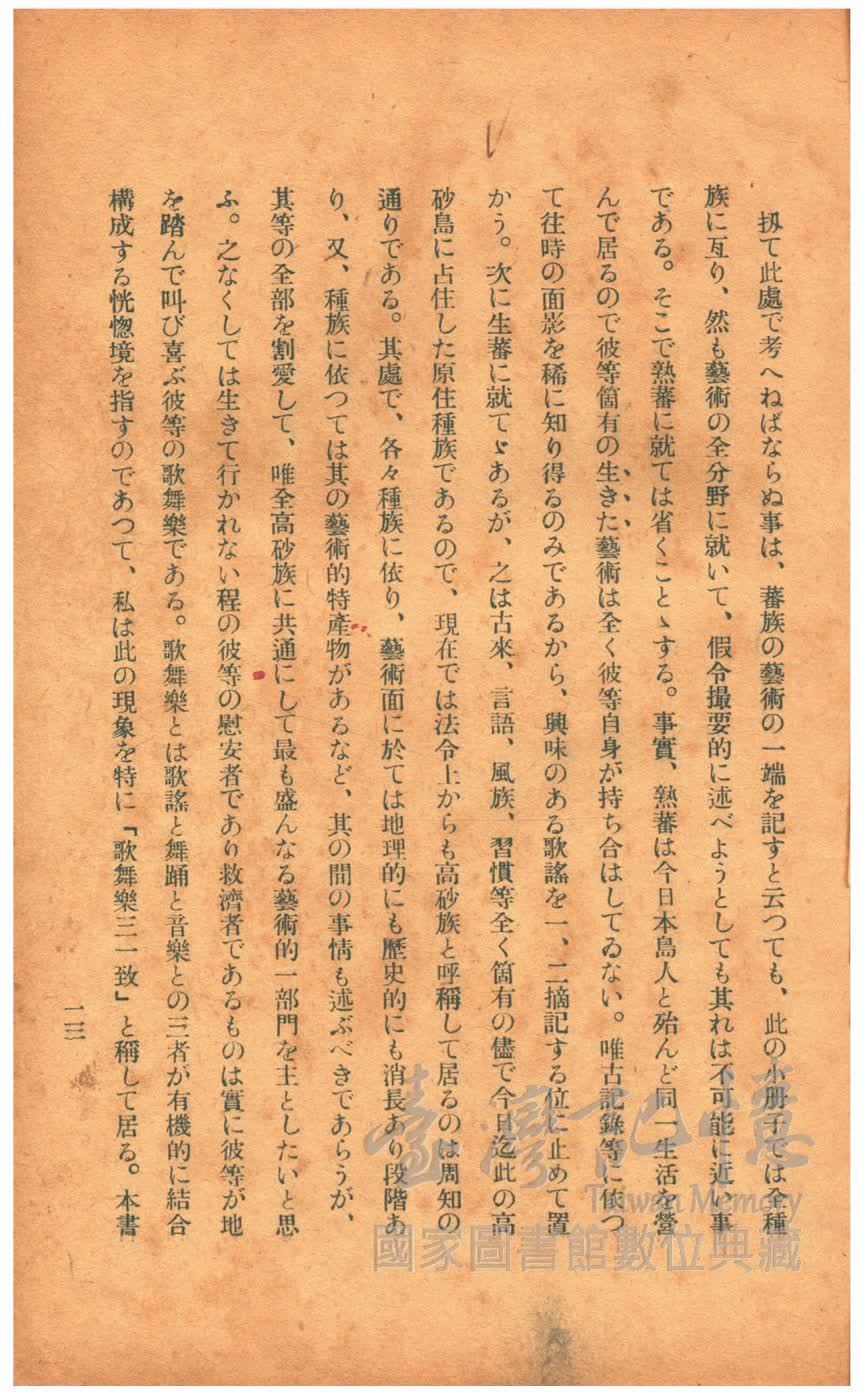 扨て此處で考へねばならぬ事は、蕃族の藝術の一端を記すと云つても、此の小册子では全種
族に亙り、然も藝術の全分野に就いて、假令撮要的に述べようとしても其れは不可能に近い事
である。そこで熟蕃に就ては省くことゝする。事實、熟蕃は今日本島人と殆んど同一生活を營
んで居るので彼等箇有の生きた藝術は全く彼等自身が持ち合はしてゐない。唯古記錄等に依つ
て往時の面影を稀に知り得るのみであるから、興味のある歌謠を一、二摘記する位に止めて置
かう。次に生蕃に就てゞあるが、之は古來、言語、風族、習慣等全く箇有の儘で今日迄此の高
砂島に占住した原住種族であるので、現在では法令上からも高砂族と呼稱して居るのは周知の
通りである。其處で、各々種族に依り、藝術面に於ては地理的にも歷史的にも消長あり段階あ
り、又、種族に依つては其の藝術的特產物があるなど、其の間の事情も述ぶべきであらうが、
其等の全部を割愛して、唯全高砂族に共通にして最も盛んなる藝術的一部門を主としたいと思
ふ。之なくしては生きて行かれない程の彼等の慰安者であり救濟者であるものは實に彼等が地
を踏んで叫び喜ぶ彼等の歌舞樂である。歌舞樂とは歌謠と舞踊と音樂との三者が有機的に結合
構成する恍惚境を指すのであつて、私は此の現象を特に「歌舞樂三一致」と稱して居る。本書
一三
臺灣記憶
Taiwan Memory
國家圖書館數位典藏